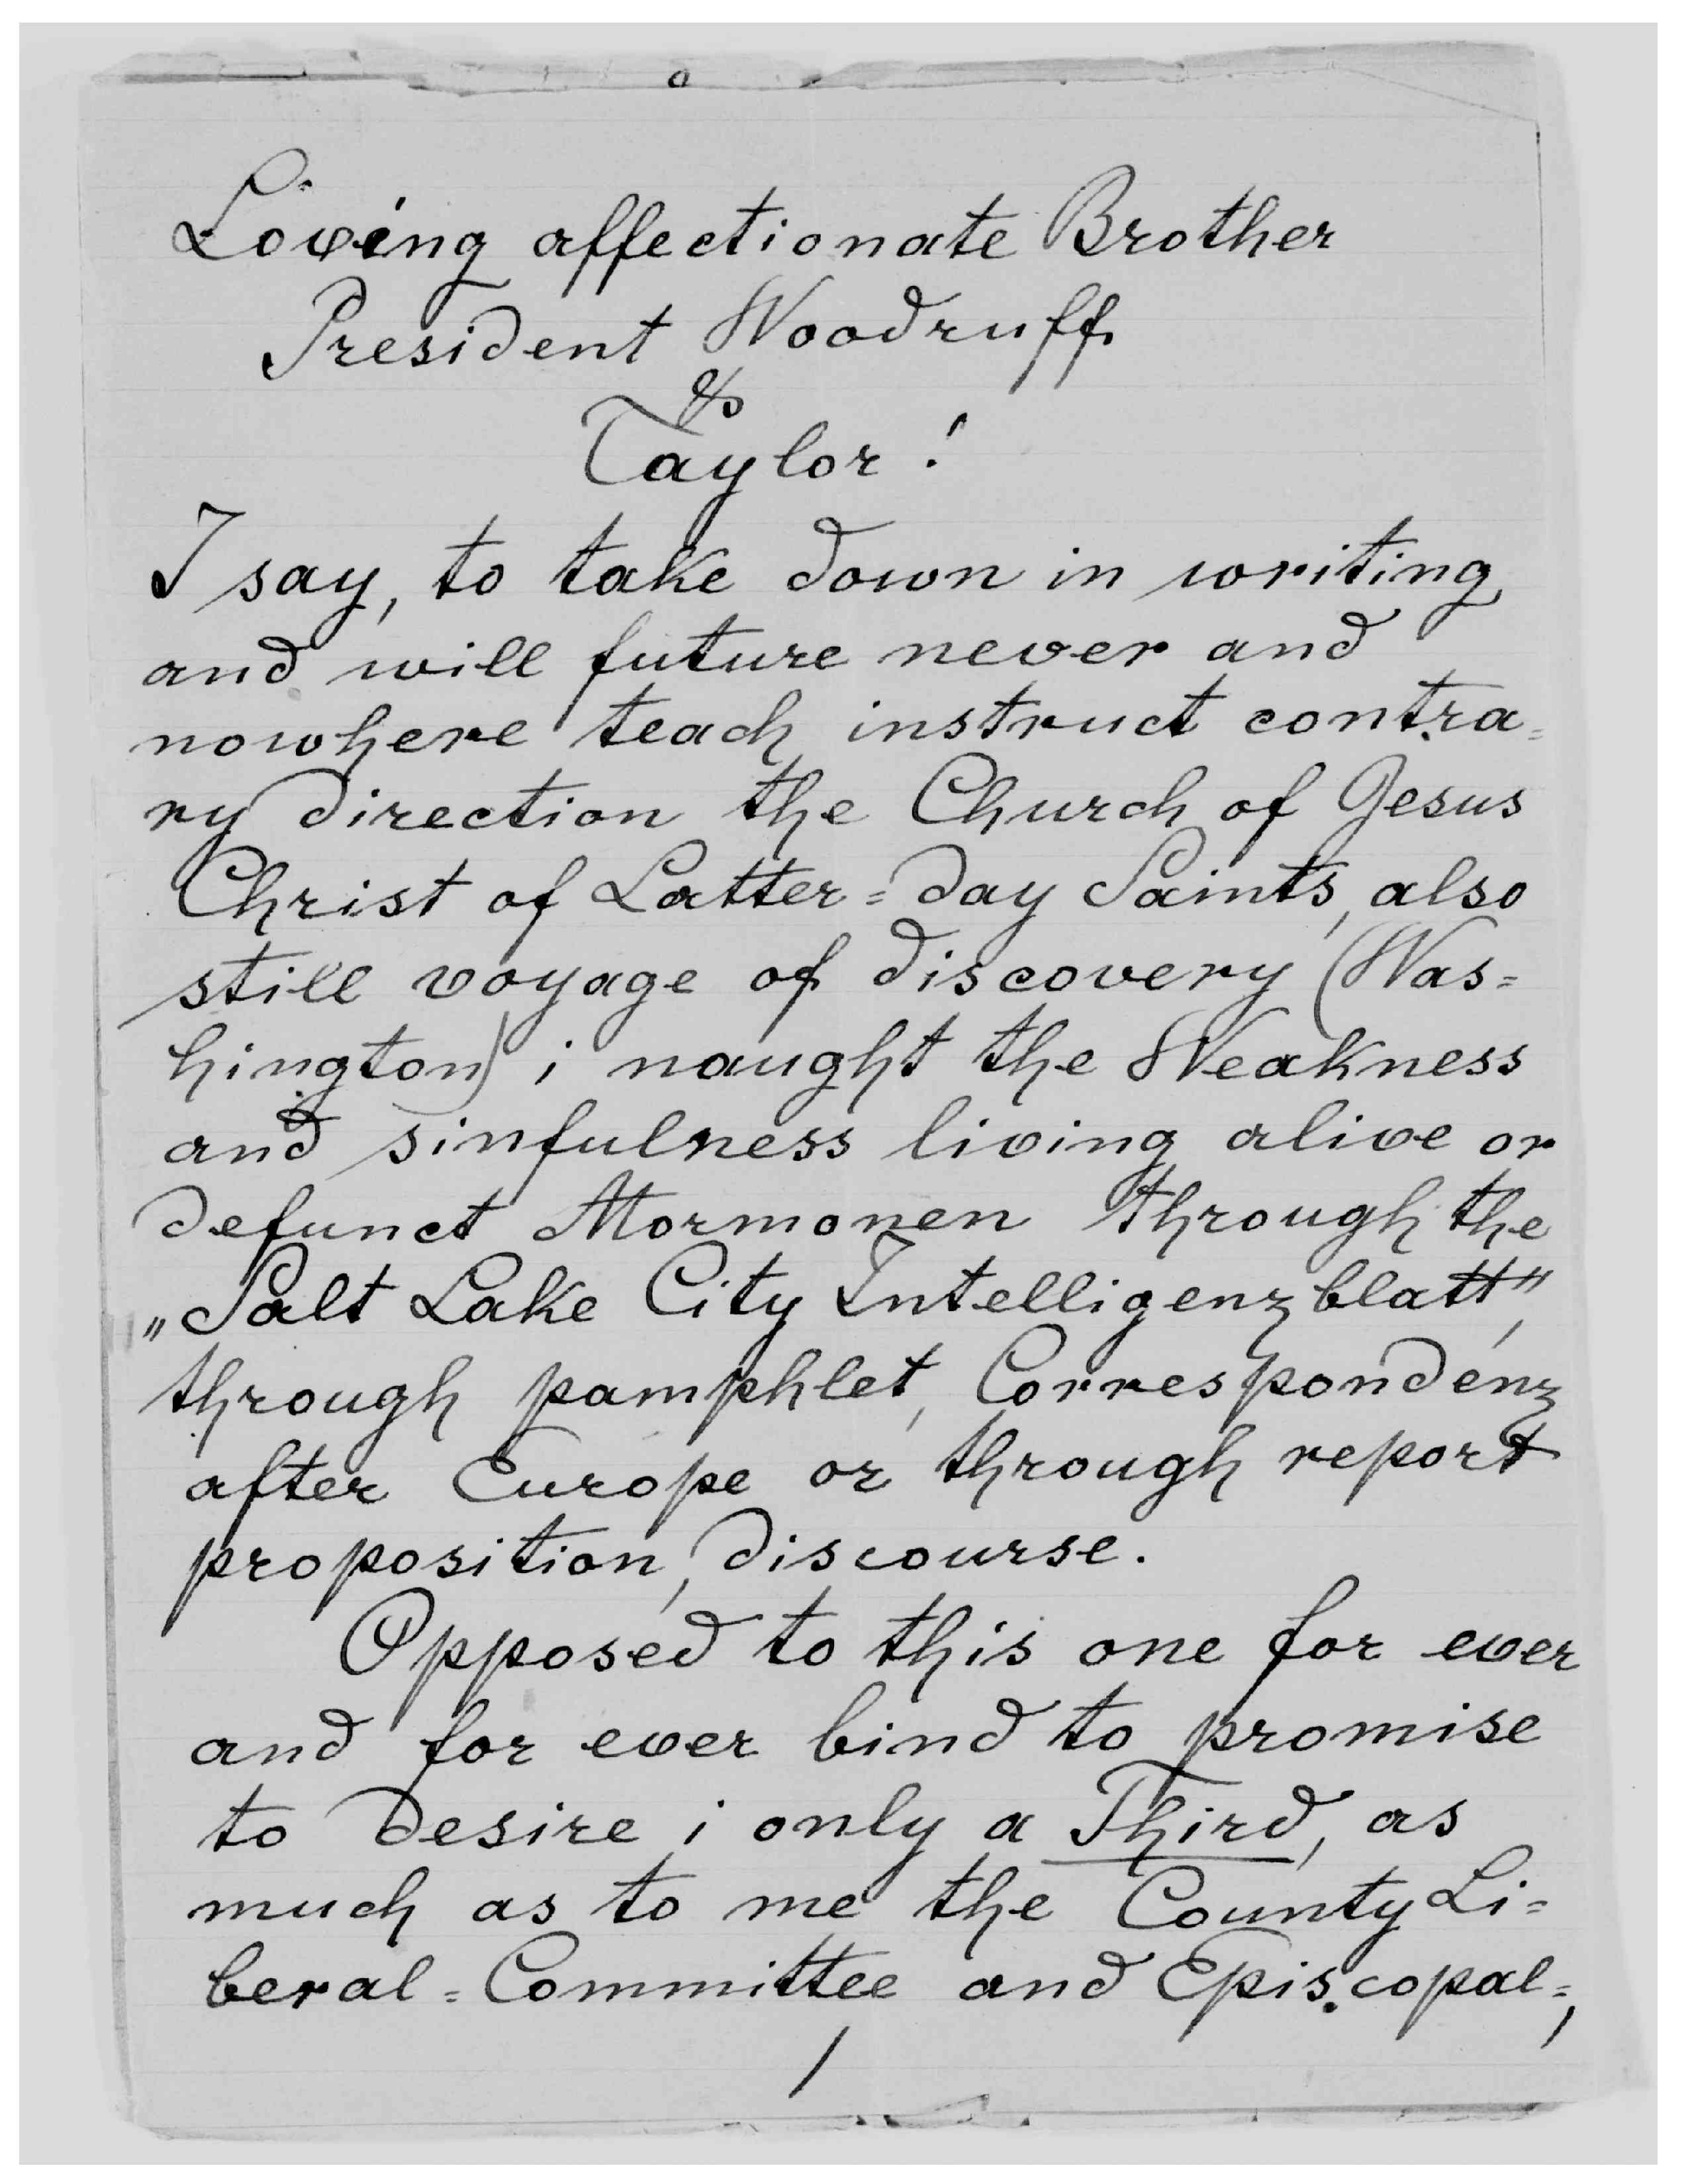 Loving affectionate Brother
President Woodruff
&
Taylor!
I say, to take down in writing
and will future never and
nowhere teach instruct contra=
ry direction the Church of Jesus
Christ of Latter=day Saints, also
still voyage of discovery (Was=
hington) i naught the Weakness
and sinfulness living alive or
defunct Mormonen through the
„Salt Lake City Intelligenzblatt",
through pamphlet, Correspondénz
after Europe or through report
proposition, discourse.
Opposed to this one for ever
and for ever bind to promise
to desire i only a Third, as
much as to me the County Li=
beral=Committee and Epis.copal=,
1